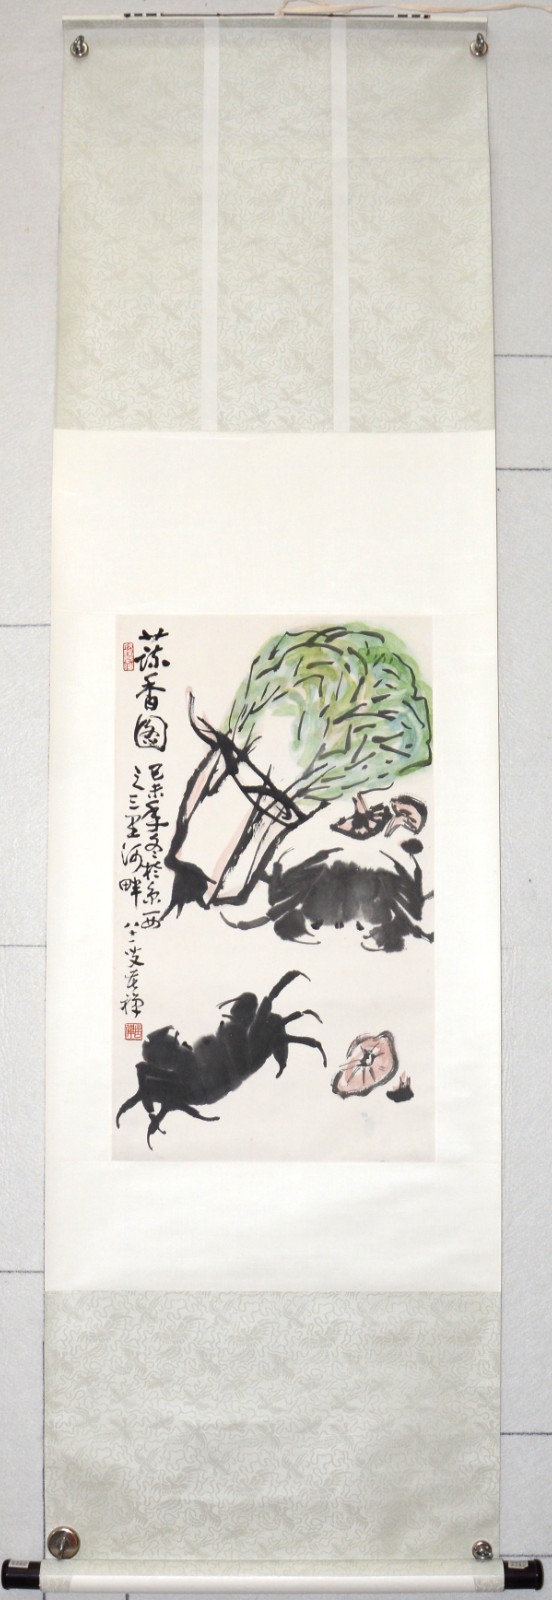 蔬香图
己未年冬于京西
之三里河畔
八十二叟苦禅